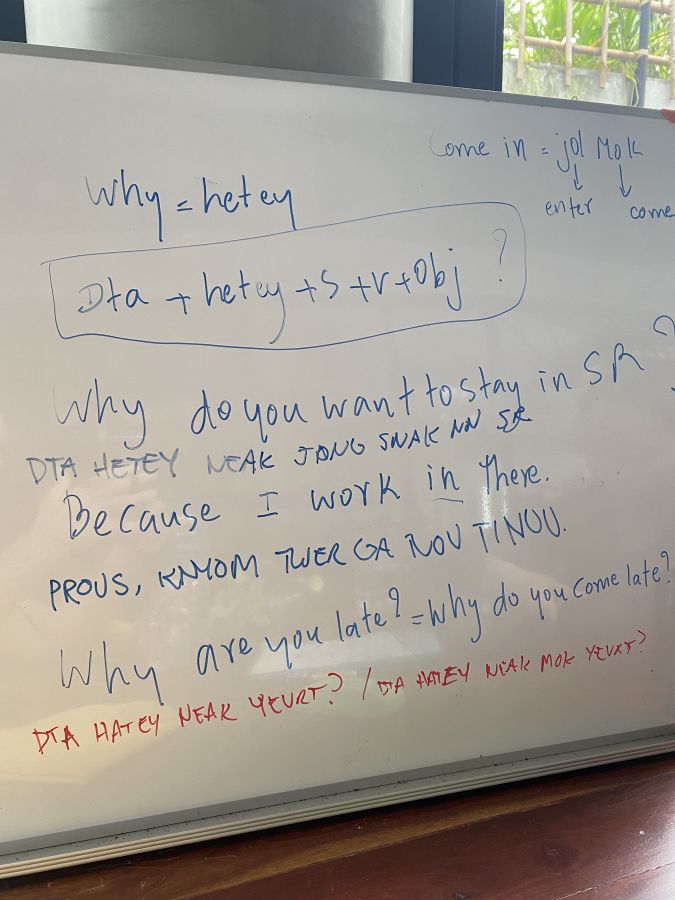 Come in = jol Mok
enter come
Why = hetey
Dta + hetey + S + V + Obj ?
Why do you want to stay in SR ?
DTA HETEY NEAK JONG SNAK NN SR
Because I work in there.
PROUS, KNYOM TWER GA NOV TINOU.
Why are you late? = Why do you come late?
DTA HATEY NEAK YEURT? / DTA HATEY NEAK MOK YEURT?